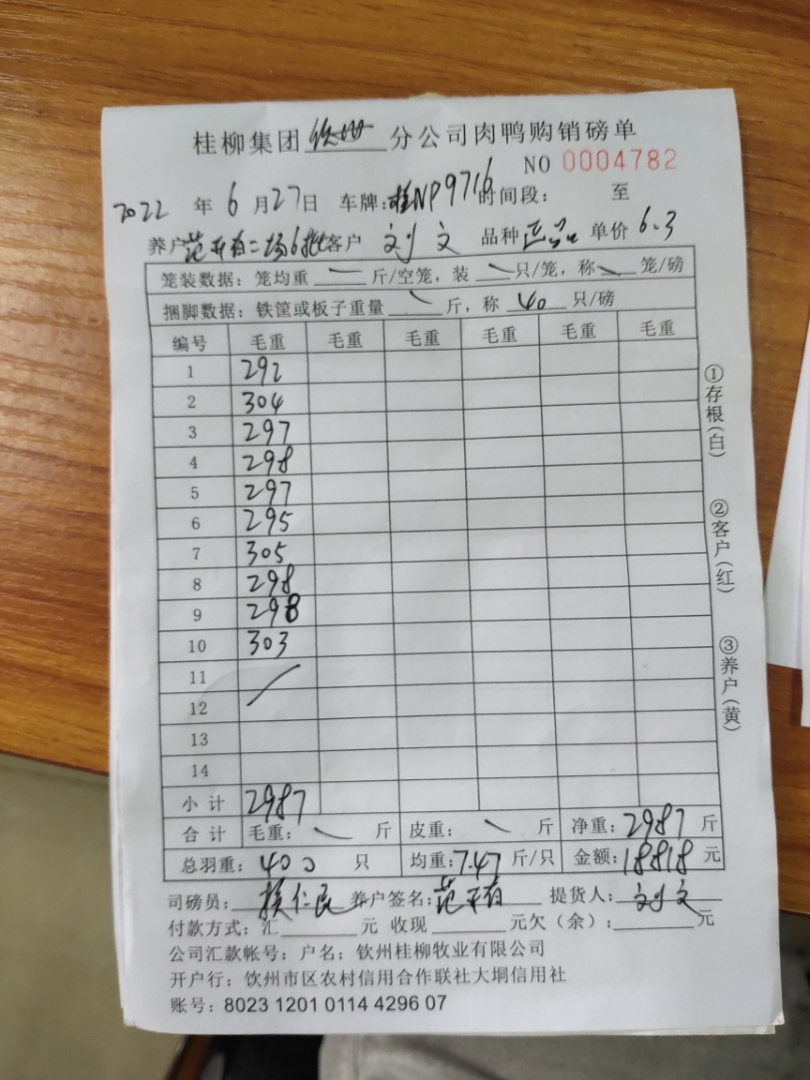 桂柳集团 钦州 分公司肉鸭购销磅单
NO 0004782
2022 年 6 月 27 日 车牌: 桂NP9716 时间段: 至
养户 范开有二场6批 客户 刘文 品种 正品 单价 6.3
笼装数据: 笼均重 斤/空笼, 装 只/笼, 称 笼/磅
捆脚数据: 铁筐或板子重量 斤, 称 40 只/磅
编号 毛重 毛重 毛重 毛重 毛重 毛重
1 292
2 304
3 297
4 298
5 297
6 295
7 305
8 298
9 298
10 303
11
12
13
14
小计 2987
合计 毛重: 斤 皮重: 斤 净重: 2987 斤
总羽重: 400 只 均重: 7.47 斤/只 金额: 18818 元
司磅员: 仁良 养户签名: 范开有 提货人: 刘文
付款方式: 汇 元 收现 元欠(余): 元
公司汇款帐号; 户名: 钦州桂柳牧业有限公司
开户行: 饮州市区农村信用合作联社大垌信用社
账号: 8023 1201 0114 4296 07
①存根(白)
②客户(红)
③养户(黄)